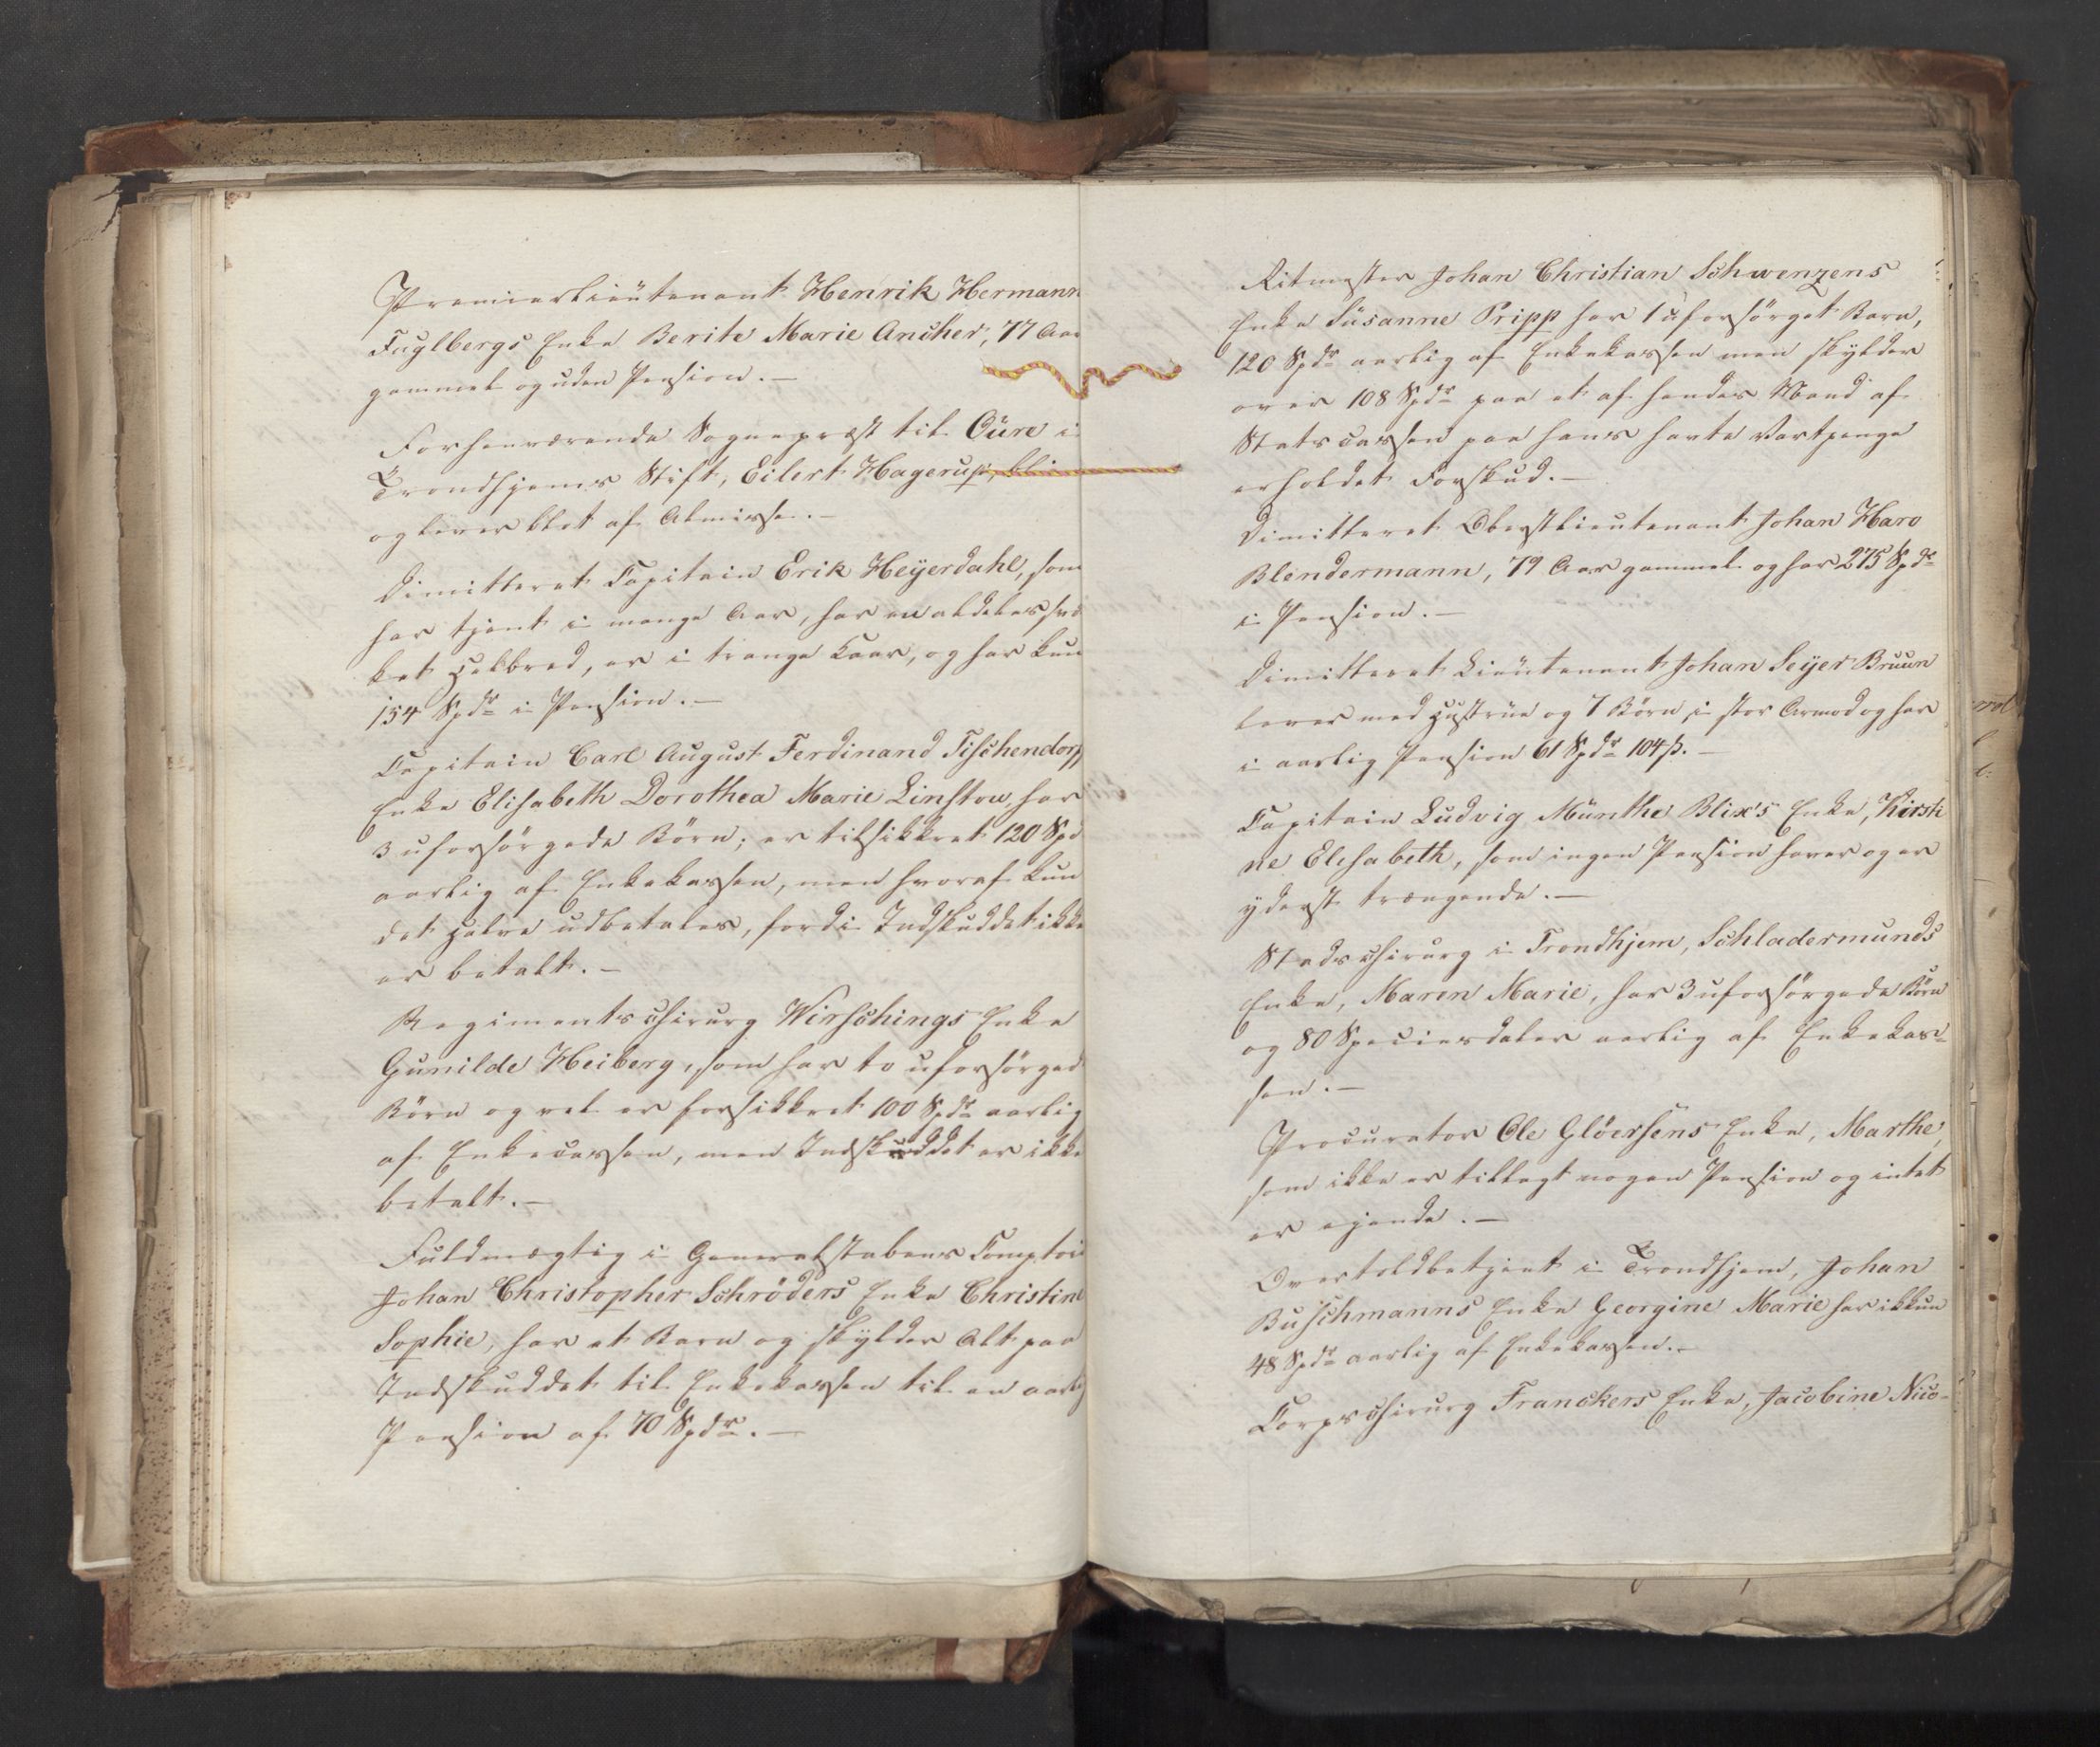 Premierlieutenant Henrik Hermann
Fuglbergs Enke Berite Marie Ancher, 77 Aar
gammel og uden Pension. —
Forhenværende Sognepræst til Oüre i
Trondhjems Stift, Eilert Hagerup, bli
og lever blot af Almisse. —
Dimitteret Capitain Erik Heyerdahl, som
har tjent i mange Aar, har en aldeles svæ
ket Helbred, er i trange Kaar, og har kun
154 Spdr i Pension. —
Capitain Carl August Ferdinand Tischendorf
Enke Elisabeth Dorothea Marie Linstow, har
3 uforsörgede Börn; er tilsikkret 120 Spd
aarlig af Enkekassen, men hvoraf kun
det halve udbetales, fordi Indskuddet ikke
er betalt. —
Regimentschirurg Wirschings Enke
Gunilde Heiberg, som har to uforsörged
Börn og vel er forsikkret 100 Spdr aarlig
af Enkecassen, men Indskuddet er ikke
betalt. —
Fuldmægtig i Generalstabens Comptoi
Johan Christopher Schröders Enke Christine
Sophie, har et Barn og skylder Alt paa
Indskuddet til Enkekassen til en aarlig
Pension af 70 Spdr. —
Ritmester Johan Christian Schwenzens
Enke Süsanne Pripp har 1 uforsörget Barn,
120 Spdr aarlig af Enkekassen men skylder
over 108 Spdr paa et af hendes Mand af
Statscassen paa hans havte Vartpenge
erholdet Forskud. —
Dimitteret Oberstlieutenant Johan Haro
Blendermann, 79 Aar gammel og har 275 Spdr
i Pension. —
Dimitteret Lieutenant Johan Seyer Bruun
lever med Hustrue og 7 Börn i stor Armod og har
i aarlig Pension 61 Spdr 104 ß. —
Capitain Ludvig Münthe Blix's Enke, Kirsti
ne Elisabeth, som ingen Pension haver og er
yderst trængende. —
Stadschirurg i Trondhjem, Schladermunds
Enke, Maren Marie, har 3 uforsörgede Börn
og 80 Speciesdaler aarlig af Enkekas-
sen. —
Procurator Ole Glöersens Enke, Marthe,
som ikke er tillagt nogen Pension og intet
er ejende. —
Overtoldbetjent i Trondhjem, Johan
Buschmanns Enke Georgine Marie har ikkun
48 Spdr aarlig af Enkekassen. —
Corpschirurg Franckers Enke, Jacobine Nico-